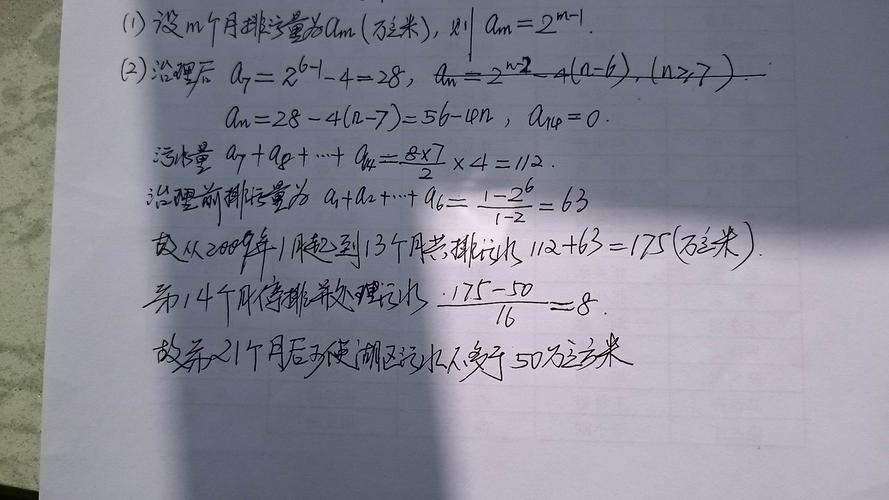 (1) 设m个月排污量为am(万立米), 则 am=2^{m-1}.
(2) 治理后 a7=2^{6-1}-4=28, an=2^{n-2}-4(n-6), (n≥7)
an=28-4(n-7)=56-4n, a14=0.
污水量 a7+a8+…+a14=\frac{8×7}{2}×4=112.
治理前排污量为 a1+a2+…+a6=\frac{1-2^6}{1-2}=63
故从2009年1月起到13个月共排污水 112+63=175(万立米).
第14个月停排并处理污水 \frac{175-50}{16}=8.
故第21个月后可使湖区污水不多于50万立方米